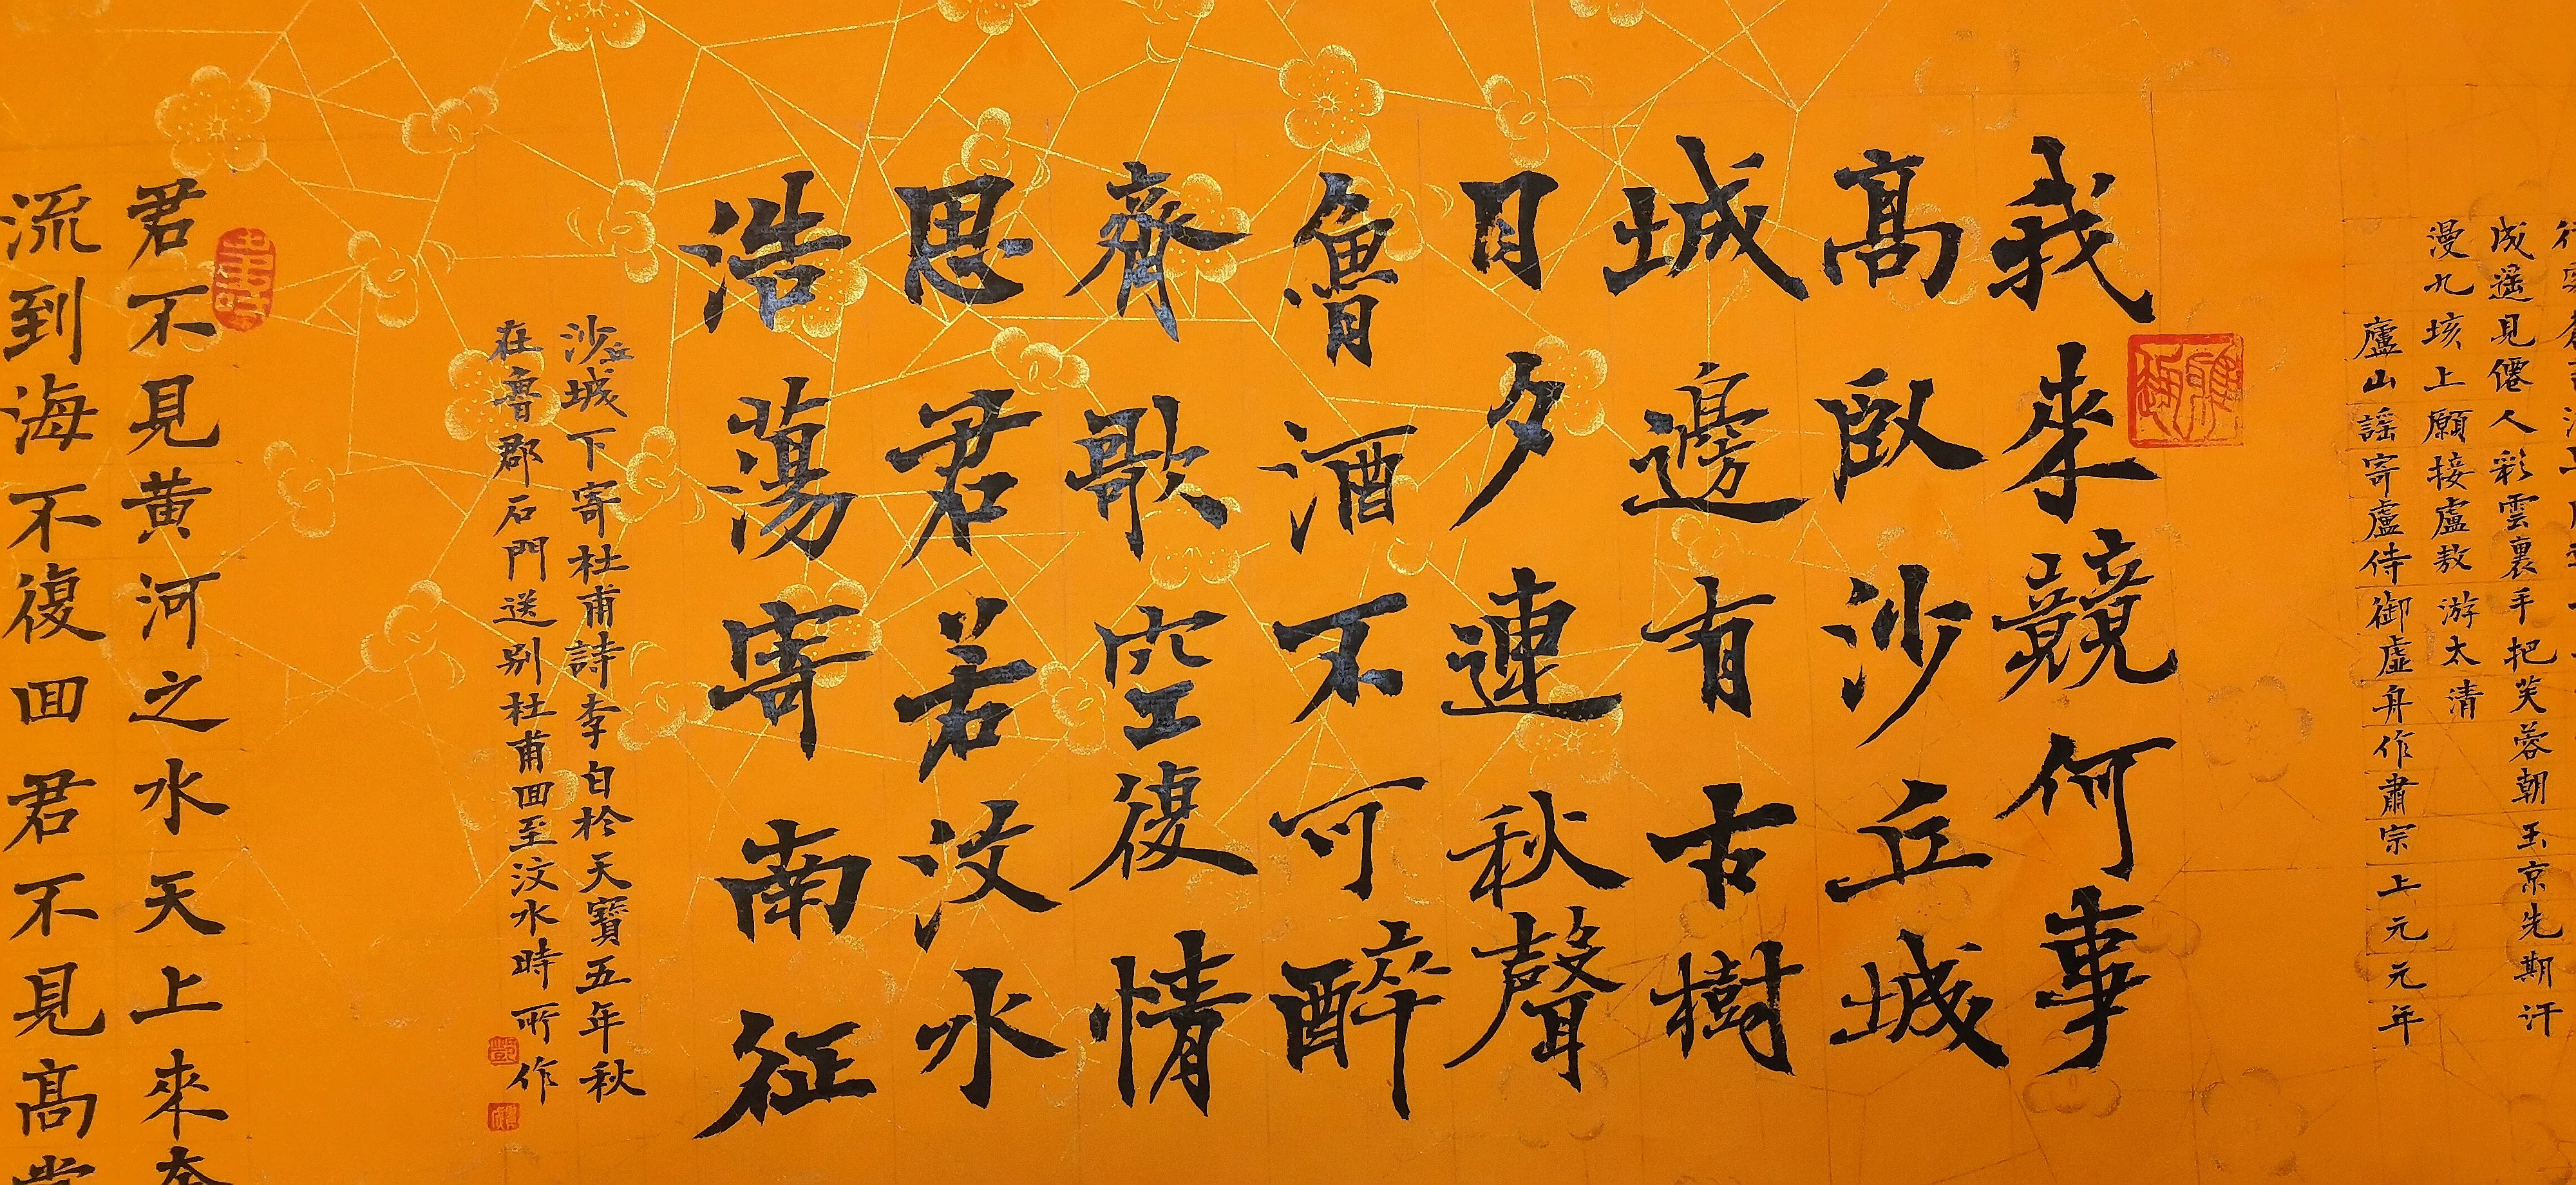 成遥見僊人彩雲裏手把芙蓉朝玉京先期汗
漫九垓上願接盧敖游太清
廬山謠寄盧侍御虛舟作肅宗上元元年
我來竟何事
高臥沙丘城
城邊有古樹
日夕連秋聲
魯酒不可醉
齊歌空復情
思君若汶水
浩蕩寄南征
沙丘城下寄杜甫詩李白於天寶五年秋
在魯郡石門送别杜甫回至汶水時所作
君不見黄河之水天上來奔
流到海不復回君不見高堂